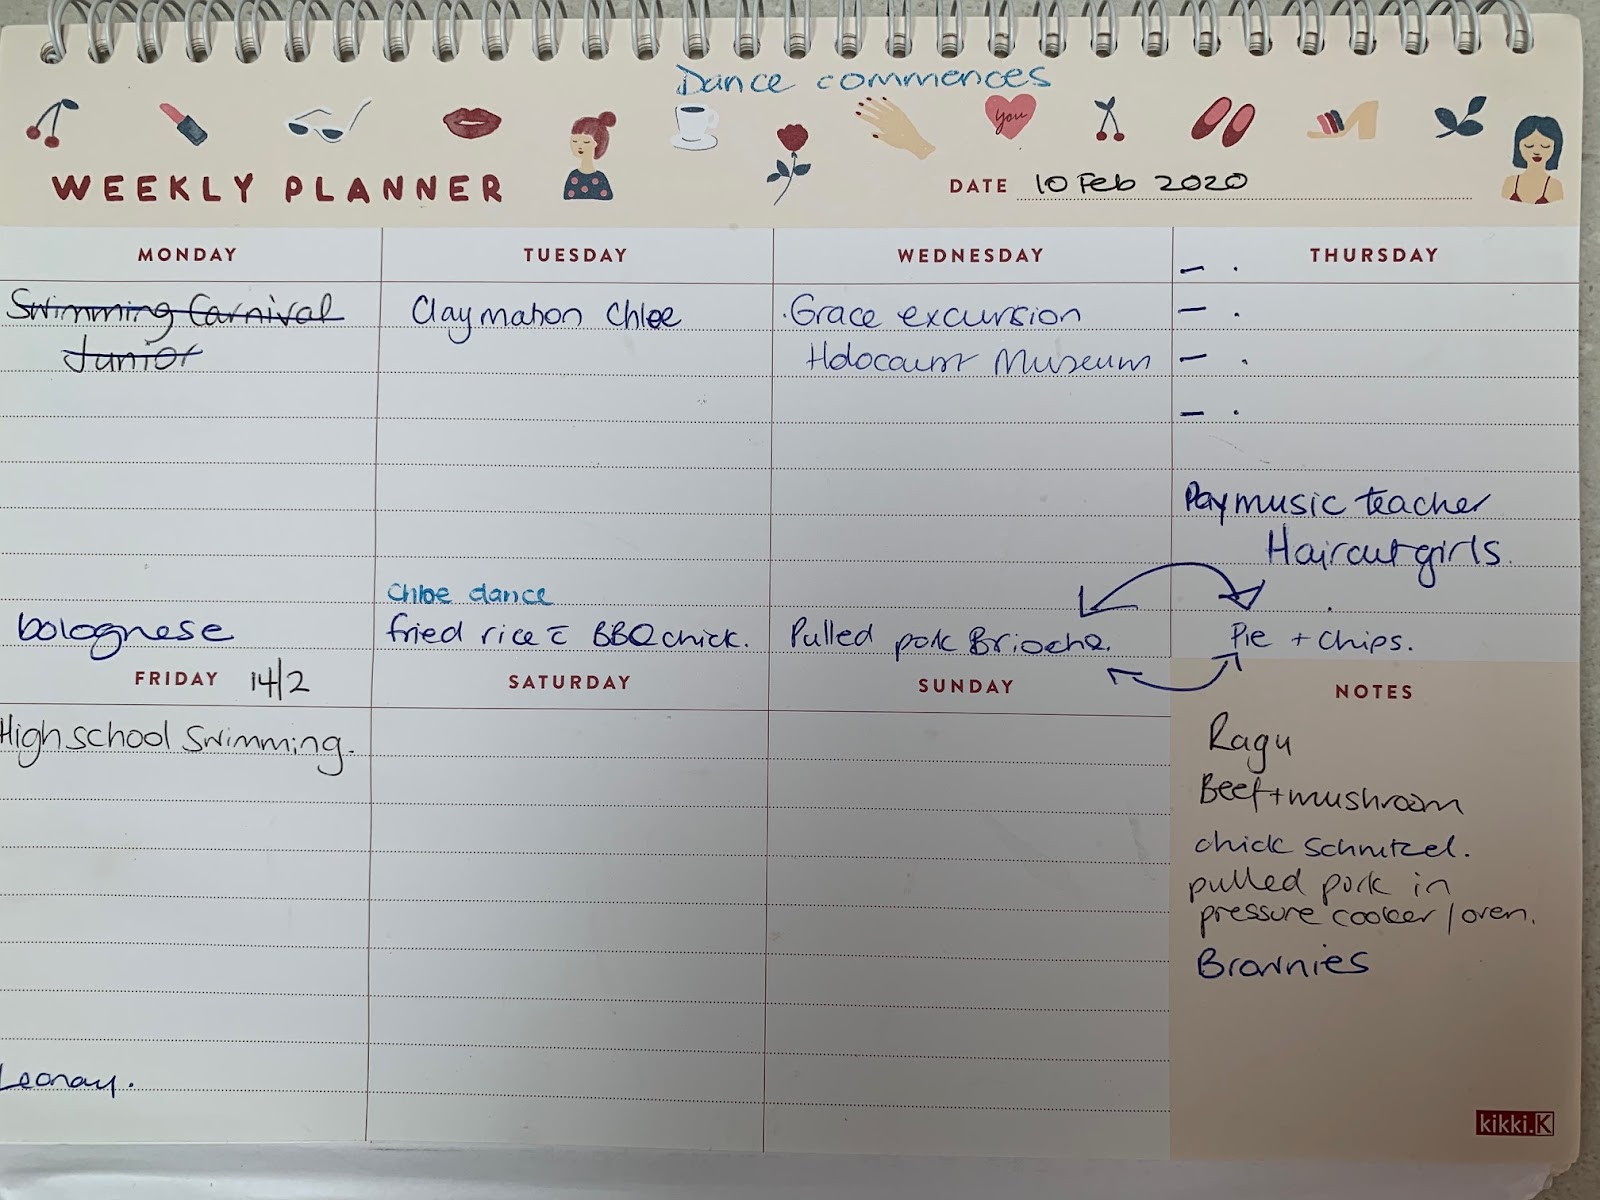 Dance commences
you
WEEKLY PLANNER
DATE 10 Feb 2020
MONDAY
Swimming Carnival
Junior
bolognese
TUESDAY
Claymation Chloe
Chloe dance
fried rice c̄ BBQ chick.
WEDNESDAY
Grace excursion
Holocaust Museum
Pulled pork Brioche.
THURSDAY
- .
- .
- .
- .
Pay music teacher
Haircut girls.
Pie + chips.
FRIDAY 14/2
High school Swimming.
Leonay.
SATURDAY
SUNDAY
NOTES
Ragu
Beef + mushroom
chick schnitzel.
pulled pork in
pressure cooker / oven.
Brownies
kikki.K